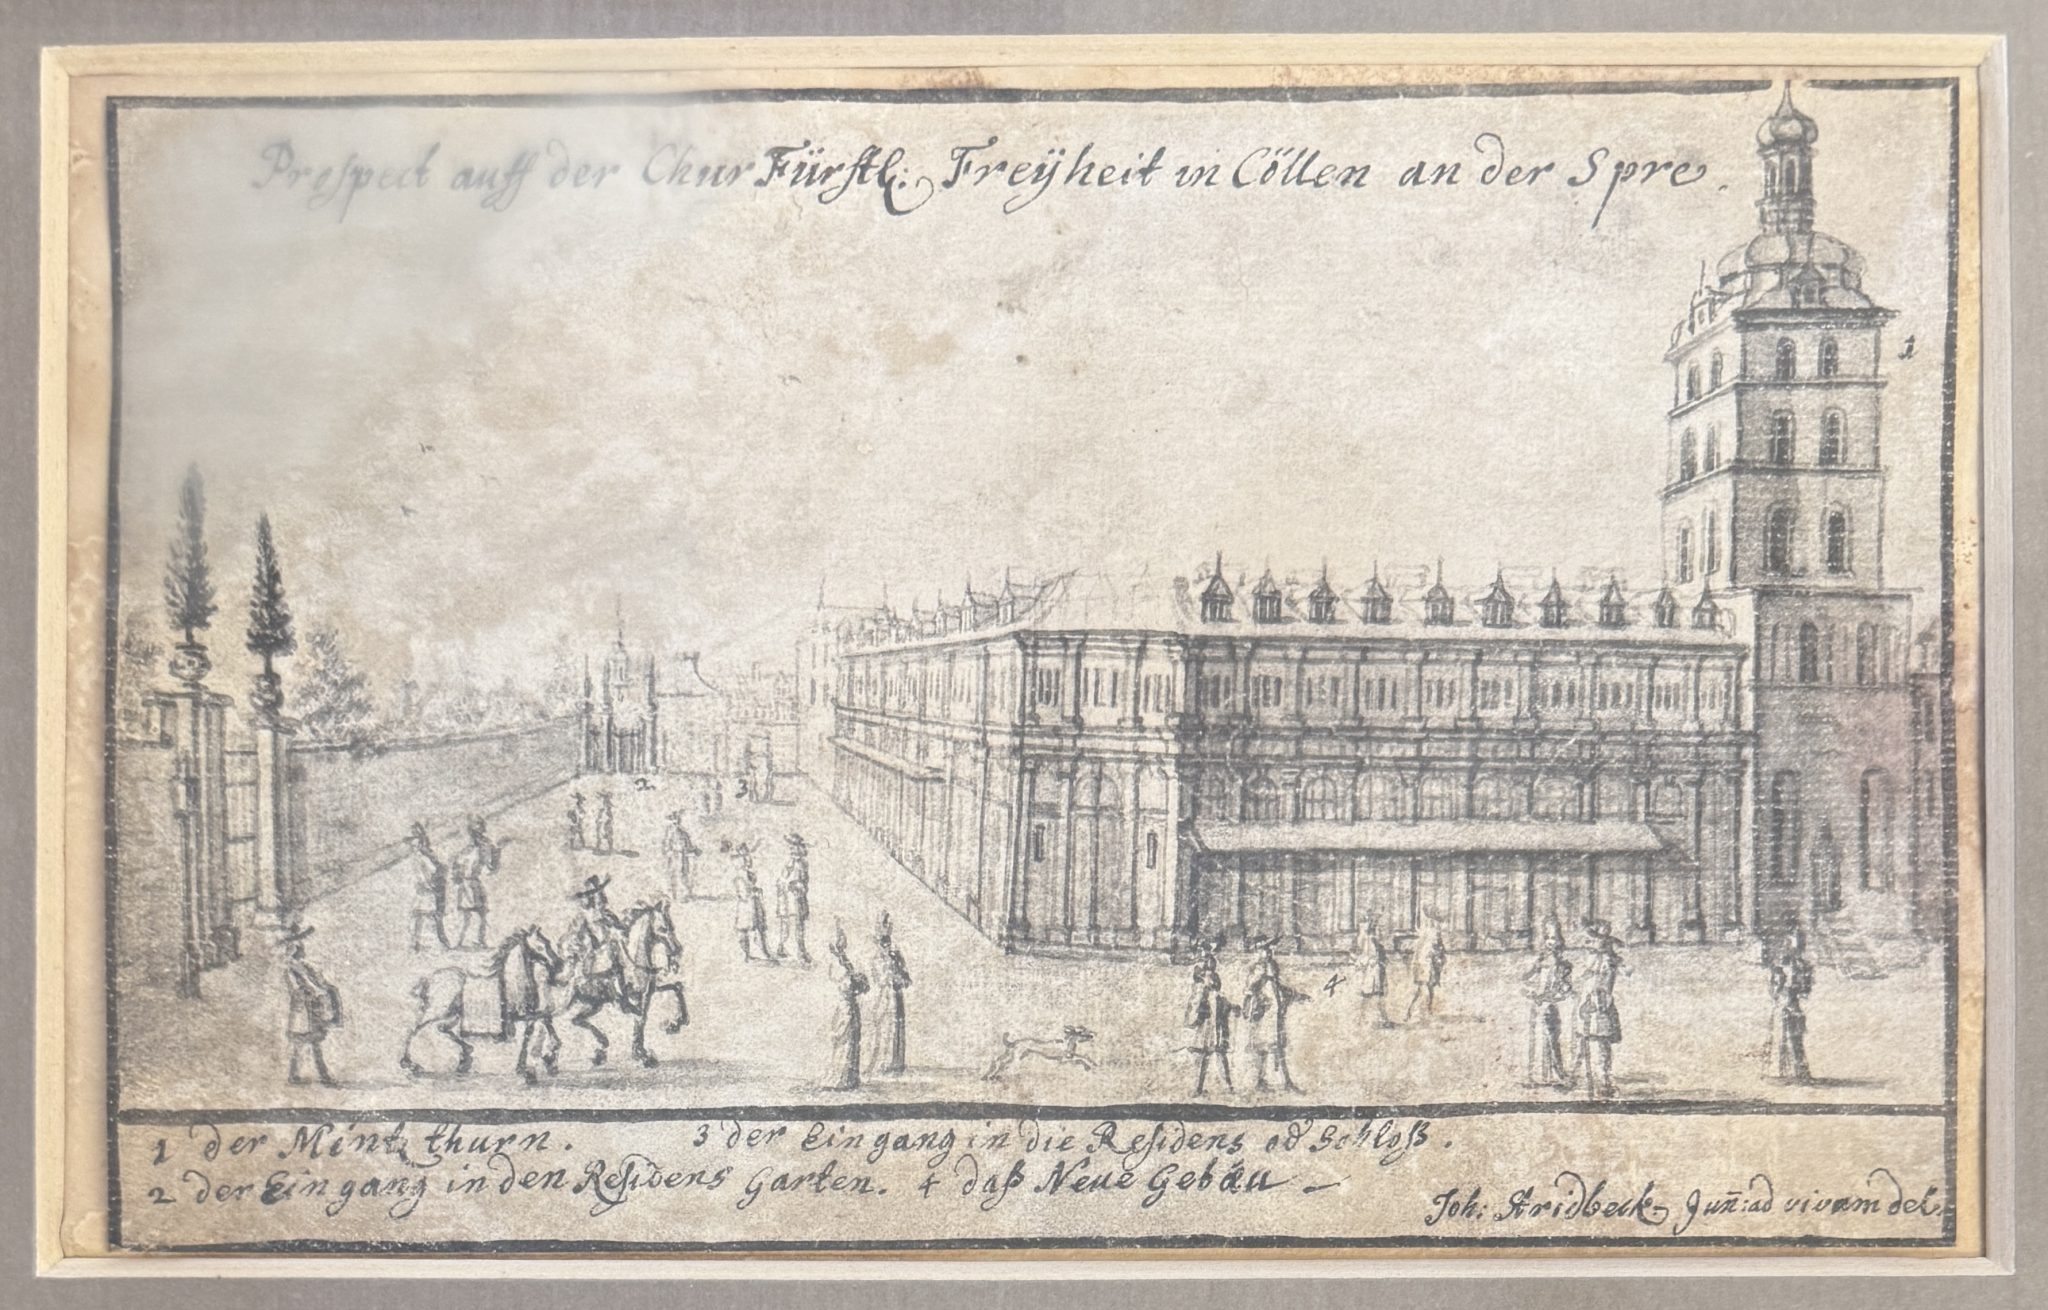 Prospect auff der ChurFürstl: Freÿheit in Cöllen an der Spre.
1
2
3
4
1 der Mintz thurn. 3 der Eingang in die Residens od Schloß.
2 der Eingang in den Residens Garten. 4 daß Neue Gebäu
Joh: Stridbeck Jun̄: ad vivam del.